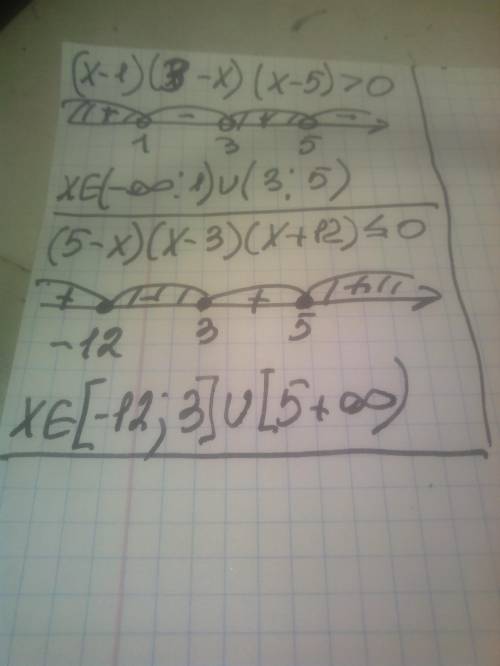 (x-1)(3-x)(x-5)>0
+ - + -
1 3 5
X∈(-∞;1)∪(3;5)
(5-x)(x-3)(x+12)≤0
+ - + +
-12 3 5
X∈[-12;3]∪[5+∞)